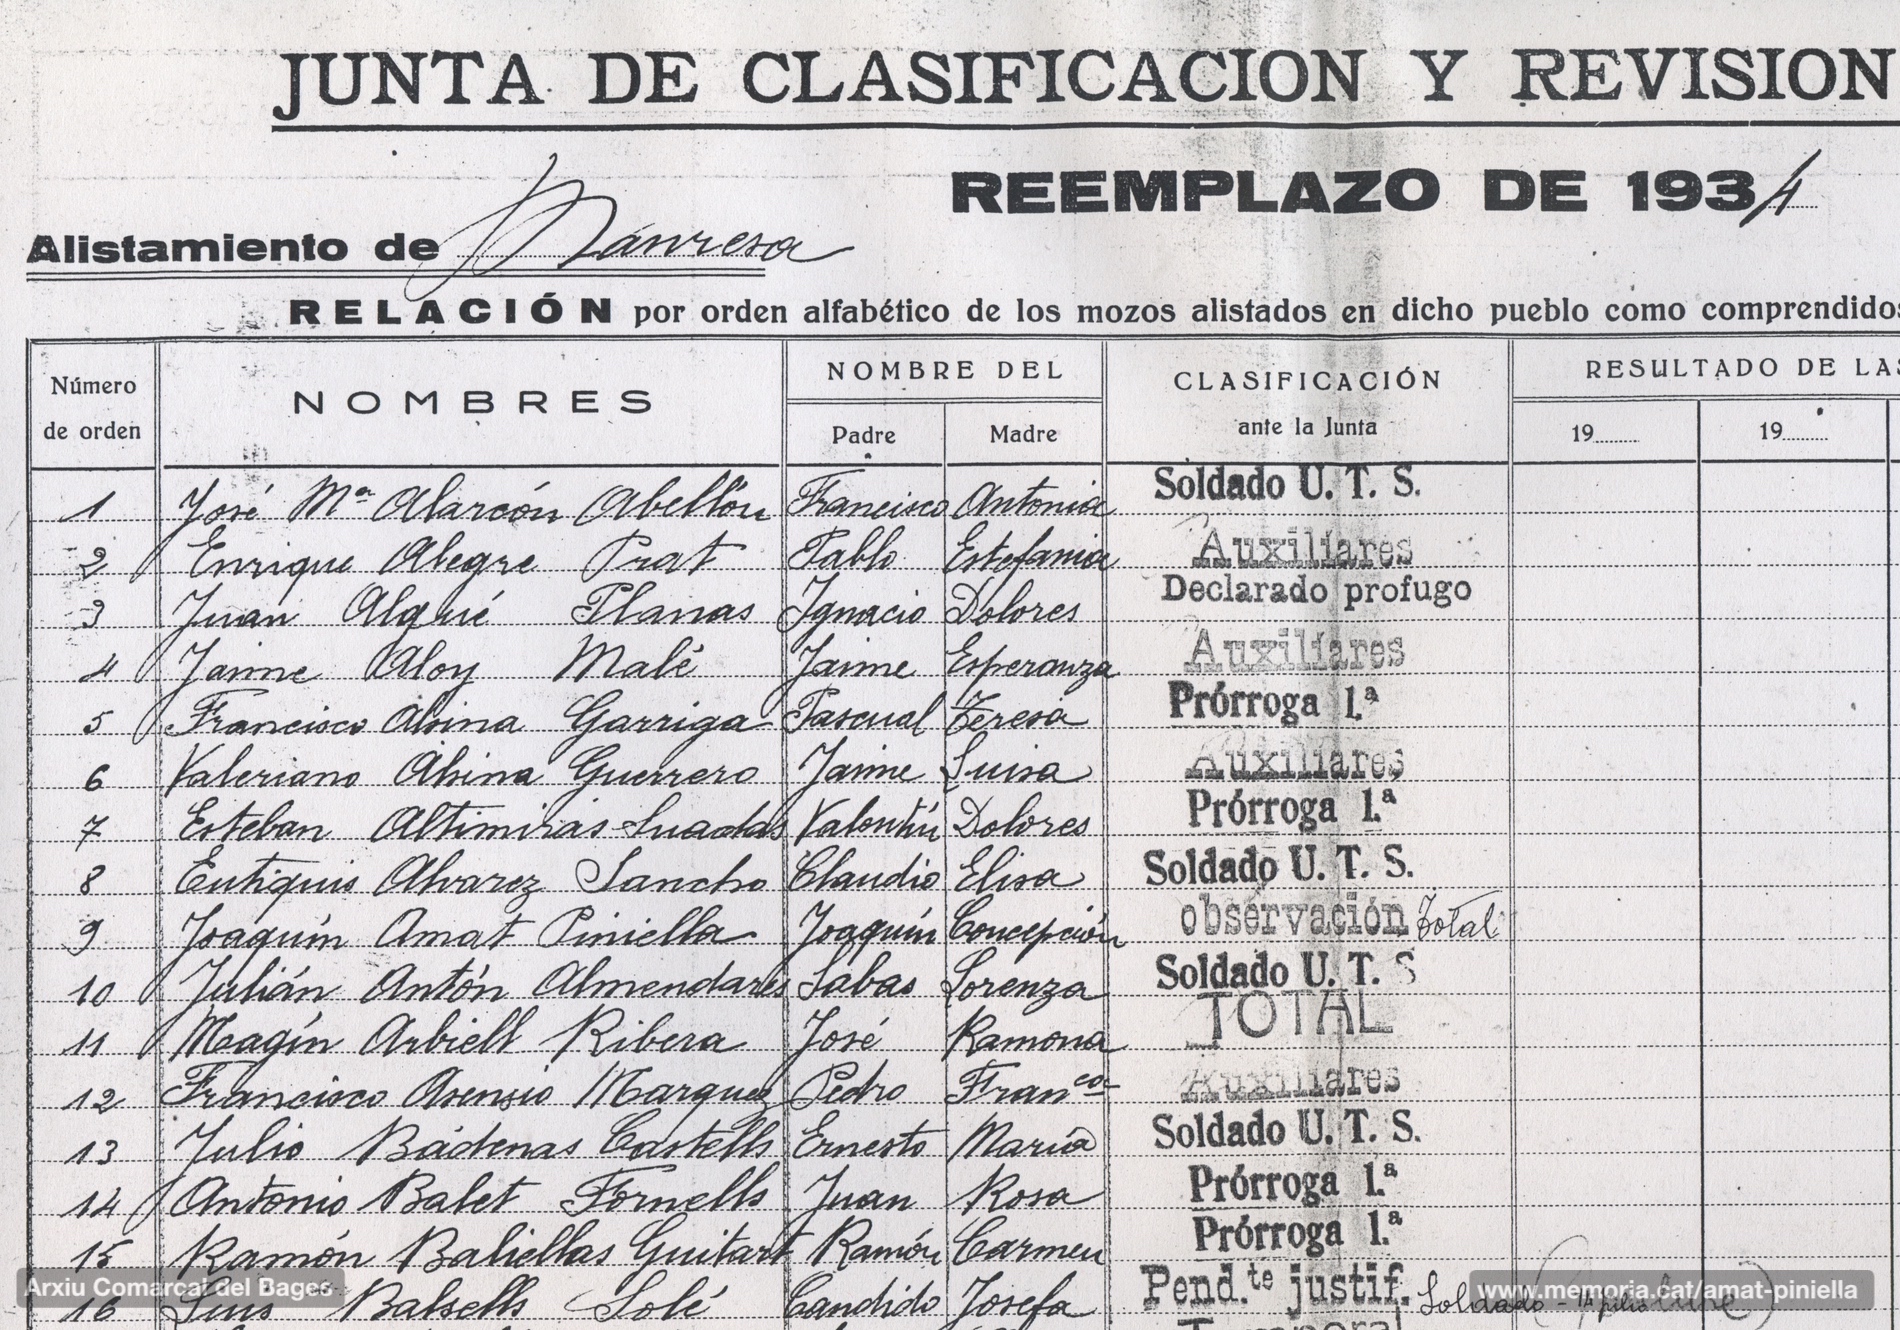 JUNTA DE CLASIFICACION Y REVISION
REEMPLAZO DE 1934
Alistamiento de Manresa
RELACIÓN por orden alfabético de los mozos alistados en dicho pueblo como comprendidos
Número de orden NOMBRES NOMBRE DEL CLASIFICACIÓN ante la Junta RESULTADO DE LAS
Padre Madre 19 19
1 José Mª Alarcón Abellón Francisco Antonia Soldado U. T. S.
2 Enrique Alegre Prat Pablo Estefania Auxiliares
3 Juan Alqué Planas Ignacio Dolores Declarado profugo
4 Jaime Aloy Malé Jaime Esperanza Auxiliares
5 Francisco Alsina Garriga Pascual Teresa Prórroga 1.ª
6 Valeriano Alsina Guerrero Jaime Luisa Auxiliares
7 Esteban Altimiras Valentín Dolores Prórroga 1.ª
8 Eutiquis Alvarez Sancho Claudio Elisa Soldado U. T. S.
9 Joaquín Amat Piniella Joaquín Concepción observación Total
10 Julián Antón Almendares Sabas Lorenza Soldado U. T. S
11 Magín Arbiell Ribera José Ramona TOTAL
12 Francisco Asensio Marquez Pedro Fran.ca Auxiliares
13 Julio Bádenas Castells Ernesto María Soldado U. T. S.
14 Antonio Balet Fornells Juan Rosa Prórroga 1.ª
15 Ramón Baliellas Guitart Ramón Carmen Prórroga 1.ª
16 Luis Balsells Solé Candido Josefa Pend.te justif. Soldado
Temporal
Arxiu Comarcal del Bages
www.memoria.cat/amat-piniella